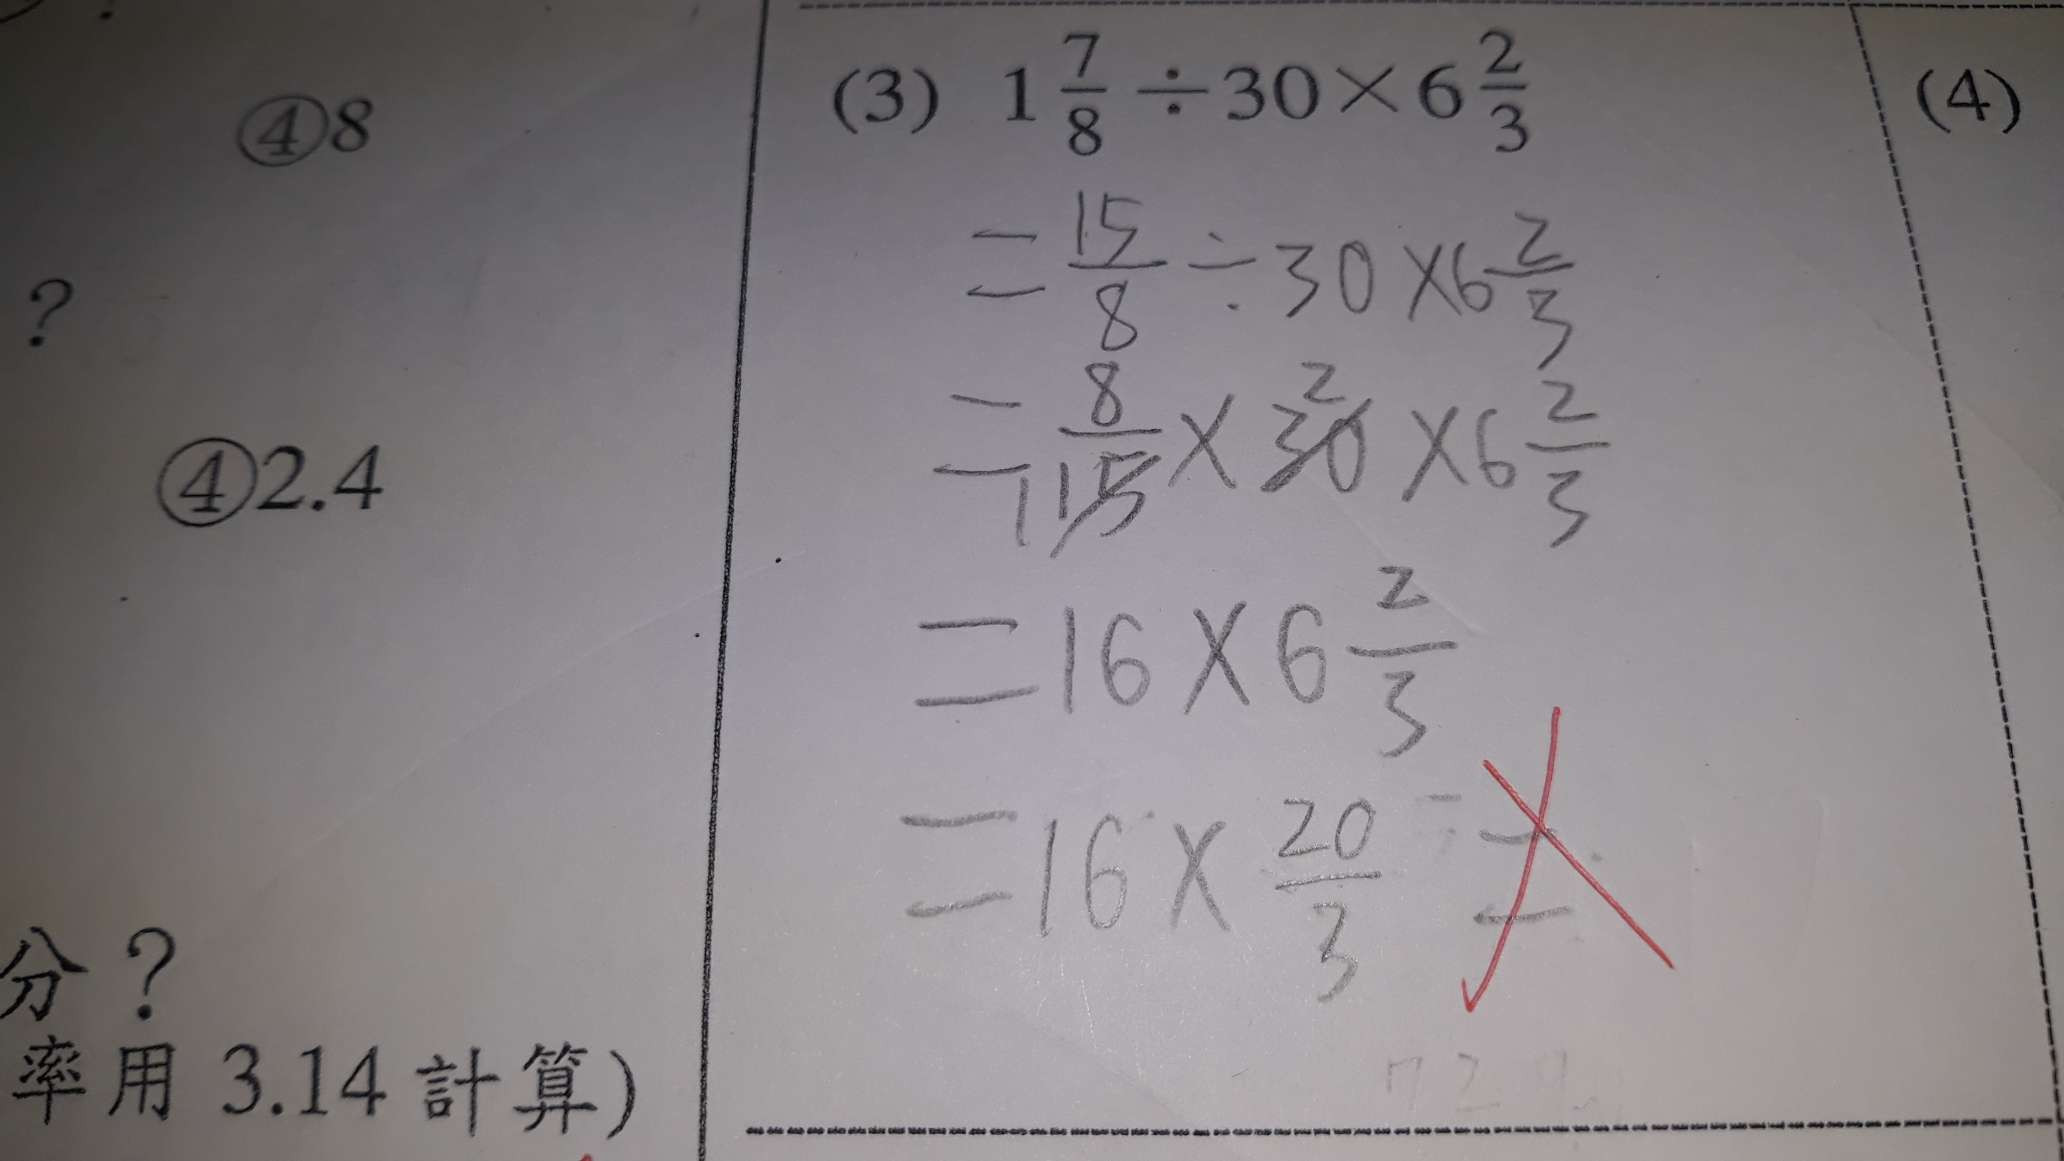 ④8
?
④2.4
分?
率用 3.14 計算)
(3) 1 7/8 ÷30×6 2/3
= 15/8 ÷30×6 2/3
= 8/15 × 30 ×6 2/3
1 2
=16×6 2/3
=16× 20/3 =
(4)